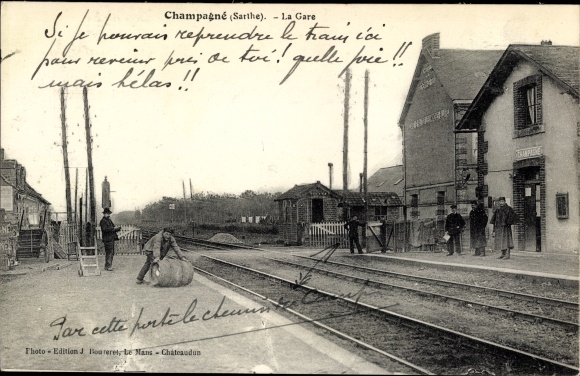 Champagné (Sarthe). - La Gare
Si je pouvais reprendre le train ici
pour revenir près de toi ! quelle joie !!
mais hélas !!
CHAMPAGNÉ
Par cette porte le chemin
Photo - Edition J. Bouveret, Le Mans - Châteaudun